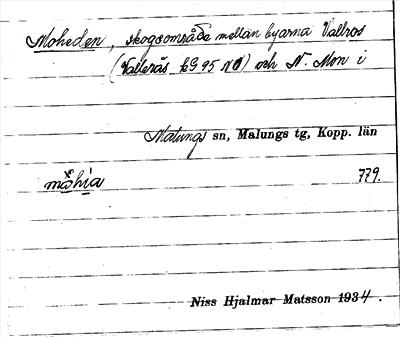 Moheden, skogsområde mellan byarna Vallros
(Vallerås EG 95 NO) och N. Mon i
Malungs sn, Malungs tg, Kopp. län
779.
Niss Hjalmar Matsson 1934.